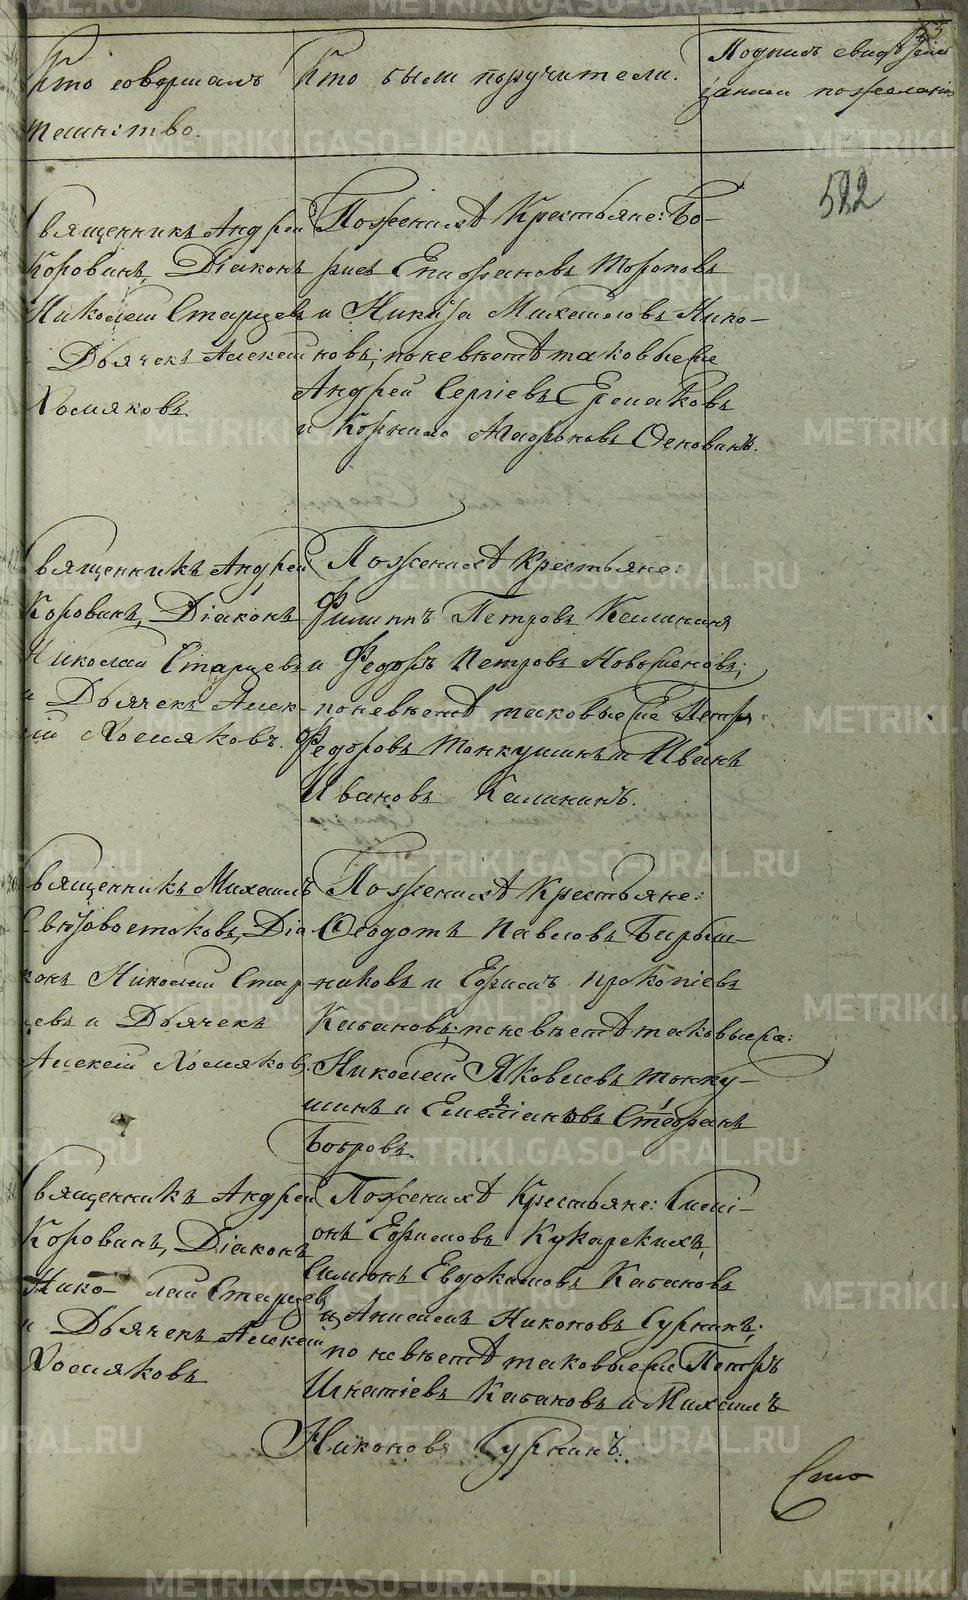 53
Кто совершалъ
таинство.
Кто были поручители.
Подпись свидѣтелей
записи по желанію
522
Священникъ Андрей
Коровинъ, Діаконъ
Николай Старцевъ
и Дьячекъ Алексей
Хомяковъ.
По женихѣ Крестьяне: Бо-
рисъ Епифановъ Тороповъ
и Никита Михайловъ Нико-
новъ; по невѣстѣ таковые же
Андрей Сергіевъ Ермаковъ
и Корнило Агафоновъ
Священникъ Андрей
Коровинъ, Діаконъ
Николай Старцевъ
и Дьячекъ Алек-
ѣй Хомяковъ.
По женихѣ Крестьяне:
Филиппъ Петровъ Калинин
и Федоръ Петровъ
по невѣстѣ таковые же Петръ
Федоровъ Тонкушинъ и Иванъ
Ивановъ Калининъ.
Священникъ Михаилъ
Діа-
конъ Николай Стар-
цевъ и Дьячекъ
Алексей Хомяковъ.
По женихѣ Крестьяне:
Ѳеодотъ Павловъ Барыш-
никовъ и Ефимъ Прокопіевъ
Кабановъ; по невѣстѣ таковые же:
Николай Яковлевъ Тонку-
шинъ и Емеліановъ Стефанъ
Бобровъ.
Священникъ Андрей
Коровинъ, Діаконъ
Нико- лай Старцевъ
и Дьячекъ Алексей
Хомяковъ
По женихѣ Крестьяне: Симі-
онъ Ефимовъ Кукарскихъ,
Симіонъ Евдокимовъ Кабановъ
и Анисимъ Никоновъ Суркинъ;
по невѣстѣ таковые же Петръ
Игнатіевъ Кабановъ и Михаилъ
Никоновъ Суркинъ.
Сто
METRIKI.GASO-URAL.RU